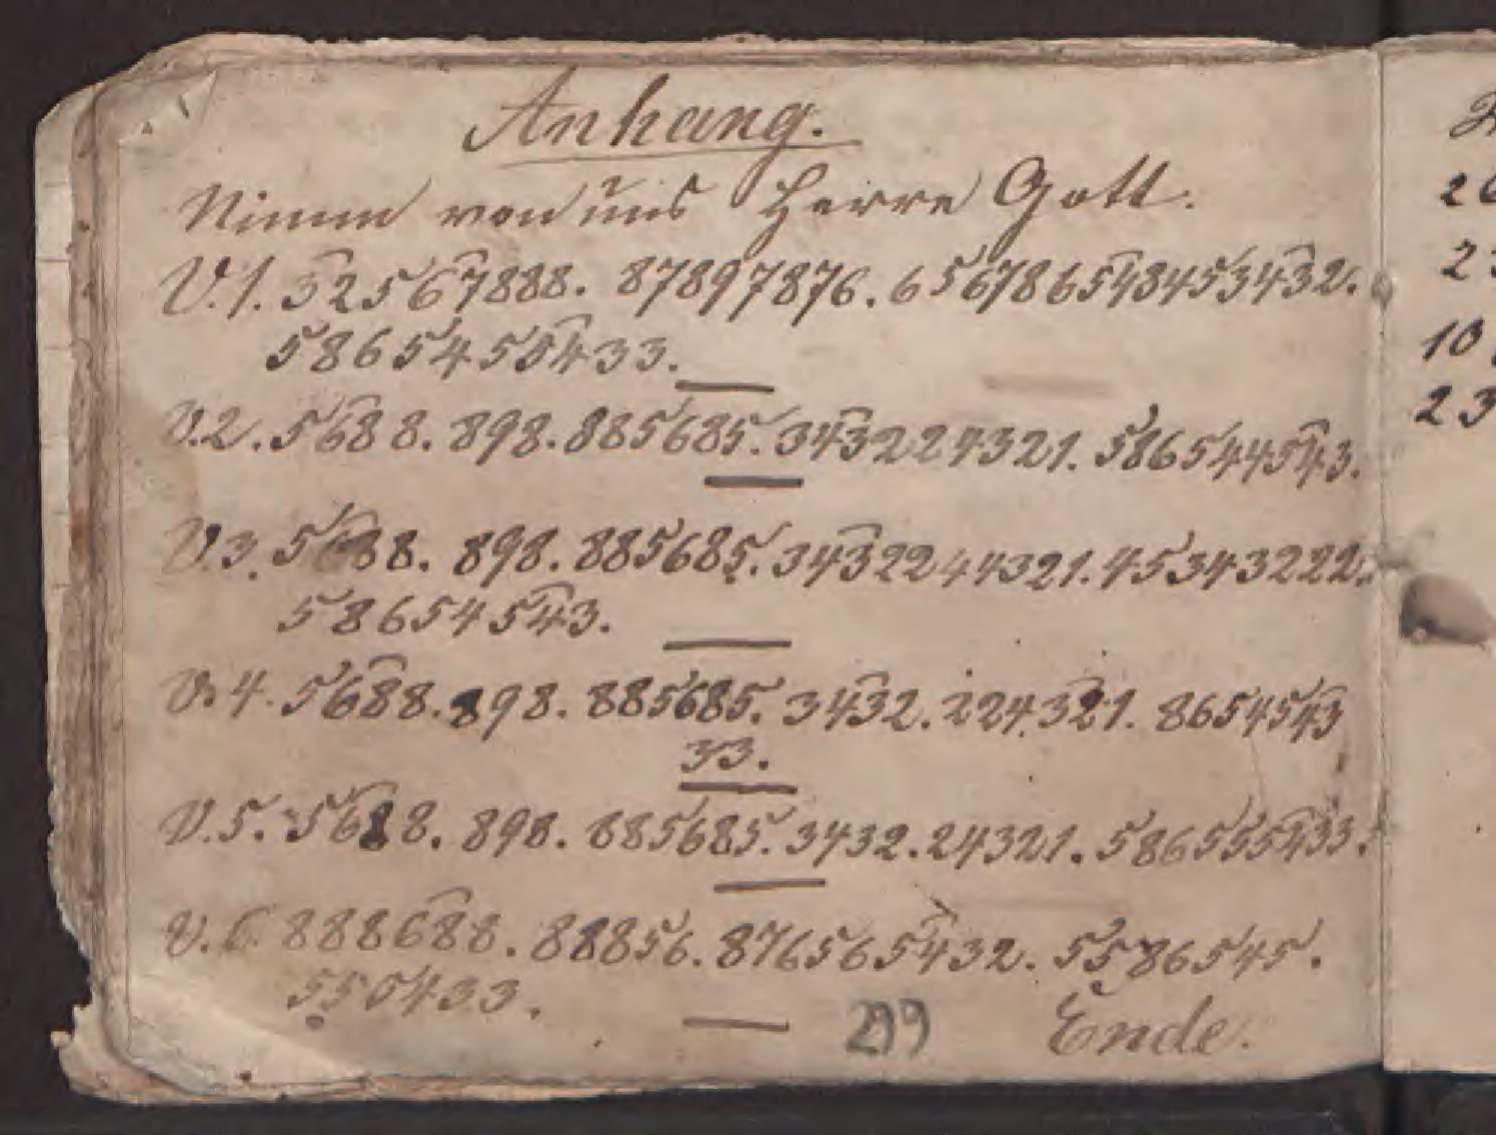 Anhang.
Nimm von uns Herre Gott.
V.1. 325667888. 87897876. 656786548453432.
5865455433.
V.2. 5688. 898. 885685. 343224321. 586544543.
V.3. 5688. 898. 885685. 3432244321. 45343222.
58654543.
V.4. 5688. 898. 885685. 3432. 224321. 8654543
33.
V.5. 5688. 898. 885685. 3432. 24321. 586555433.
V.6. 888688. 88856. 8765654 32. 5586545.
550433.
299
Ende.
26
23
10
23